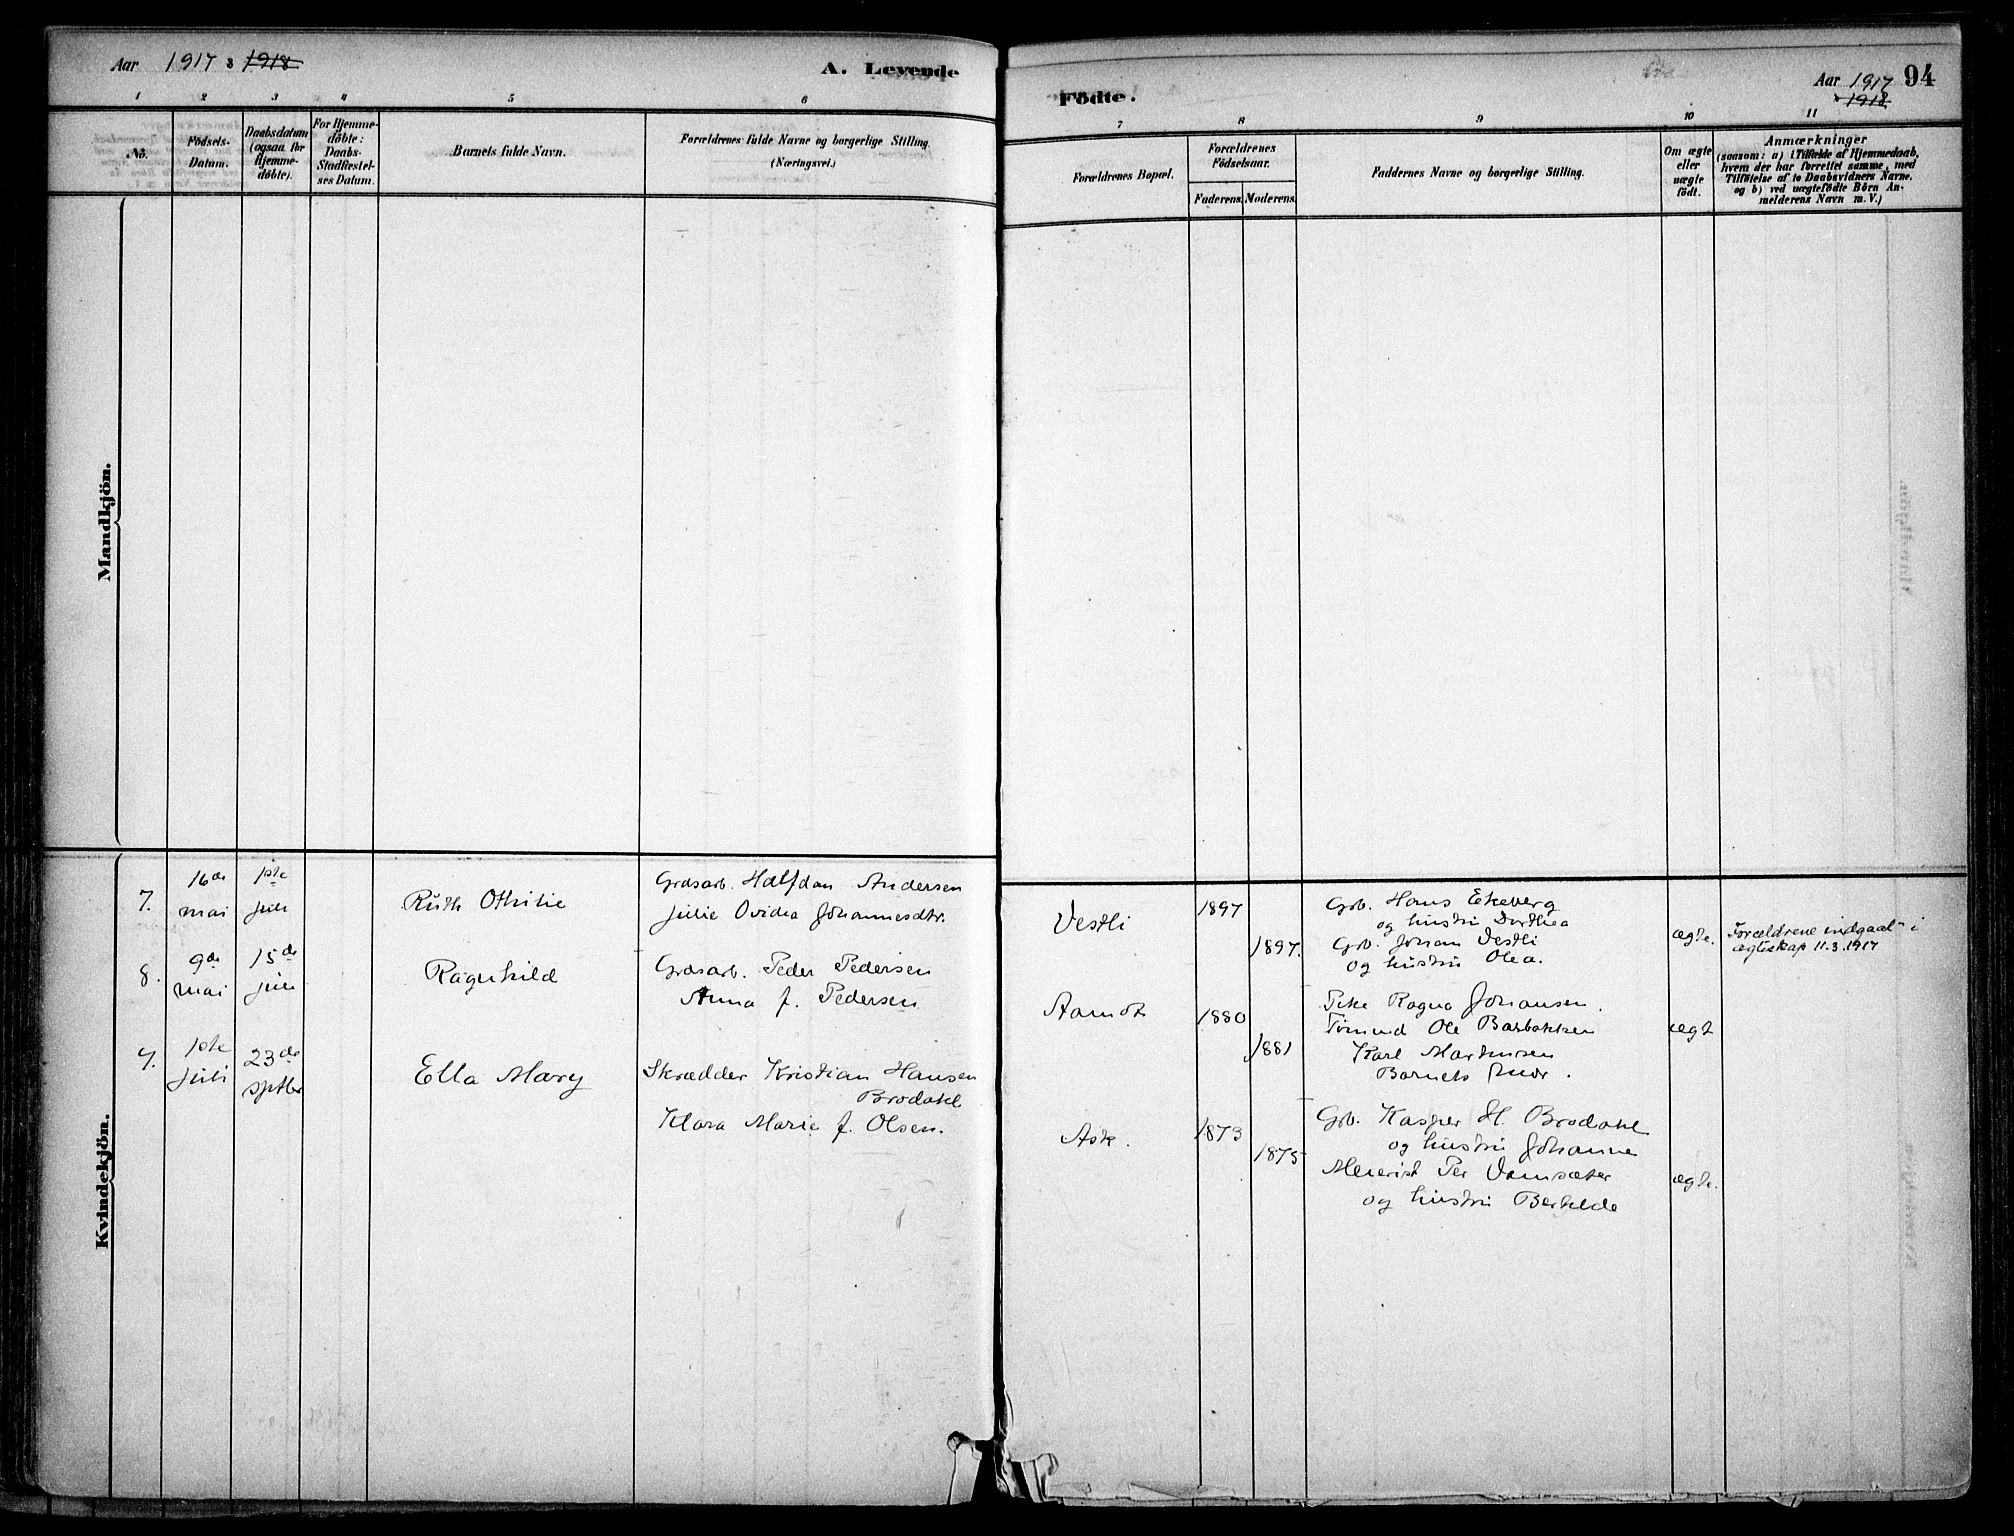 Aar 1917 & 1918
A. Levende
Födte.
Aar 1917
& 1918
94
1 2 3 4 5 6 7 8 9 10 11
No.
Födsels-
Datum.
Daabsdatum
(ogsaa for
Hjemme-
döbte).
For Hjemme-
döbte:
Daabs-
Stadfæstel-
ses Datum.
Barnets fulde Navn.
Forældrenes fulde Navne og borgerlige Stilling
(Næringsvei.)
Forældrenes Bopæl.
Forældrenes
Födselsaar.
Faderens. Moderens.
Faddernes Navne og borgerlige Stilling.
Om ægte
eller
uægte
födt.
Anmærkninger
(saasom: a) i Tilfælde af Hjemmedaab,
hvem der har forrettet samme, med
Tilföielse af to Daabsvidners Navne.
og b) ved uægtefödte Börn An-
melderens Navn m. V.)
Mandkjön.
Kvindekjön.
7.
16de
mai
1ste
juli
Ruth Othilie
Grdsarb. Halfdan Andersen
Julie Ovidea Johannesdtr.
Vestli
1897
1897.
Grb. Hans Ekeberg
og hustru Dorthea
Grb. Johan Vestli
og hustru Olea.
ægte.
Forældrene indgaat i
ægteskap 11.3.1917
8.
9de
mai
15de
juli
Ragnhild
Grdsarb. Peder Pedersen
Anna f. Pedersen
1880
1881
Pike Ragna Johansen.
Ole Barbakken
Karl Martinsen
Barnets mor.
ægt
9.
1ste
juli
23de
septbr
Ella Mary
Skrædder Kristian Hansen
Brodahl
Klara Marie f. Olsen.
Ask.
1873
1875
Grb. Kasper H. Brodahl
og hustru Johanne
Meierist Per
og hustru
ægte.